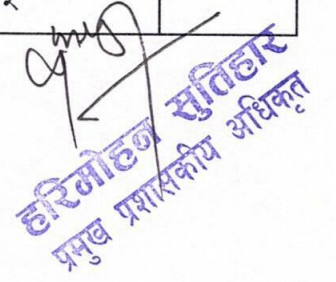 हरिमोहन सुतिहार
प्रमुख प्रशासकीय अधिकृत